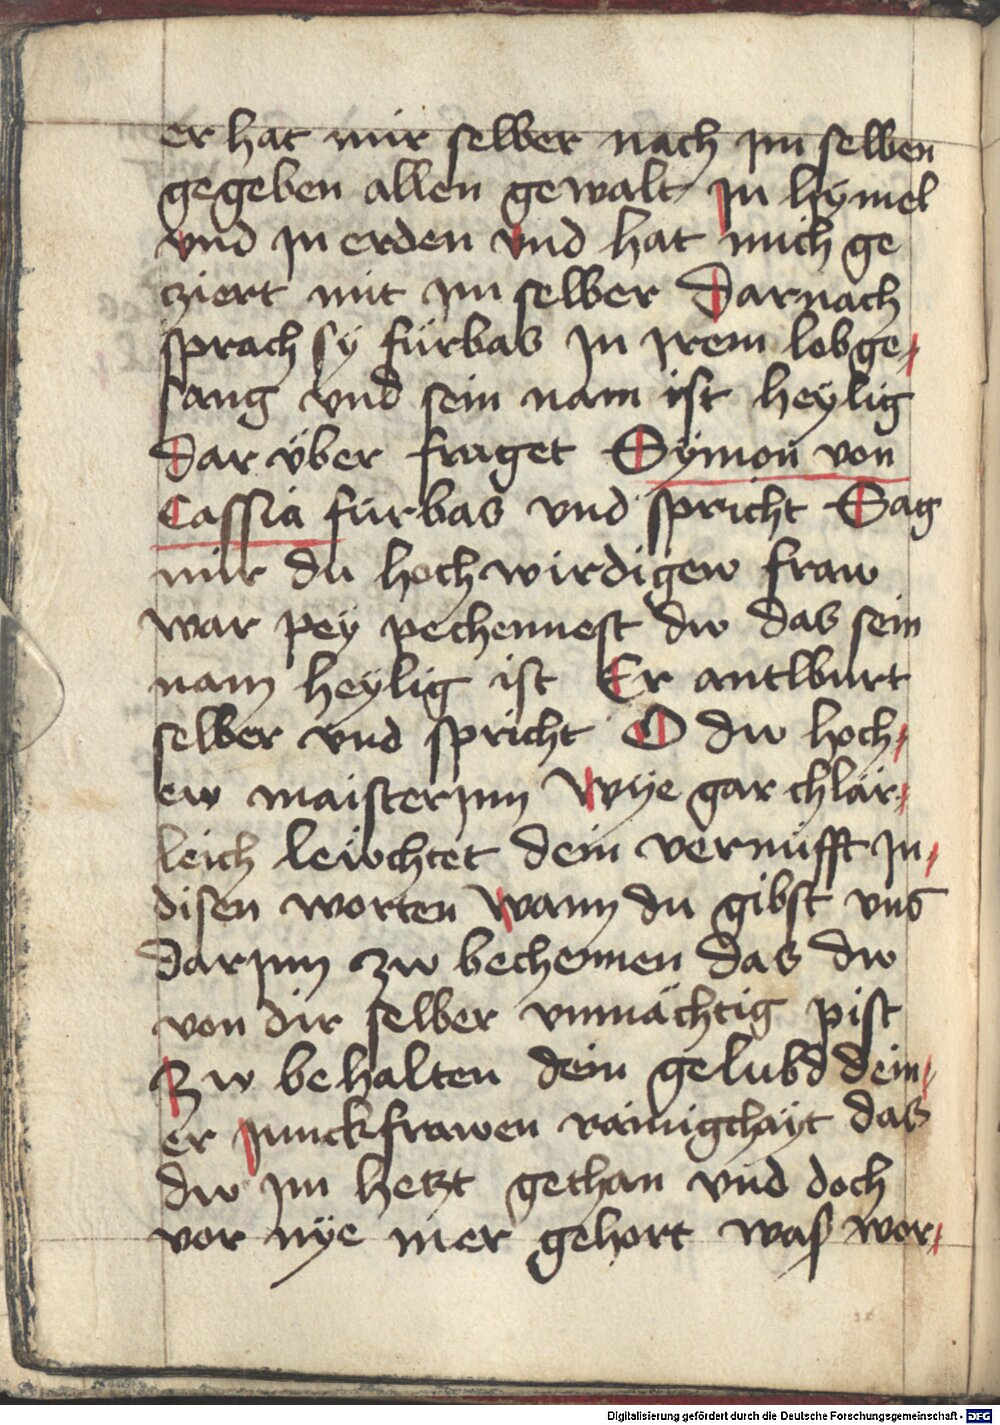 er hat mir selber nach im selben
gegeben allen gewalt jn hymel
vnd jn erden vnd hat mich ge
cziert mit im selber Darnach
sprach sy fürbas jn jrem lobge-
sang vnd sein nam ist heylig
Dar über fraget Symon von
Cassia fürbas vnd spricht Sag
mir du hochwirdigew fraw
war pey pechennest dw das sein
nam heylig ist Er antburt
selber vnd spricht O dw hoch-
ew maisterjnn Wye gar chlär-
leich lewchtet dein vernufft jn-
disen worten Wann du gibst vns
darjnn zw bechennen das dw
von dir selber vnmächtig pist
Zw behalten dein gelubd dein-
er junckfrawen rainigchayt das
dw im hetzt gethan vnd doch
vor nye mer gehort was wor-
Digitalisierung gefördert durch die Deutsche Forschungsgemeinschaft - DFG